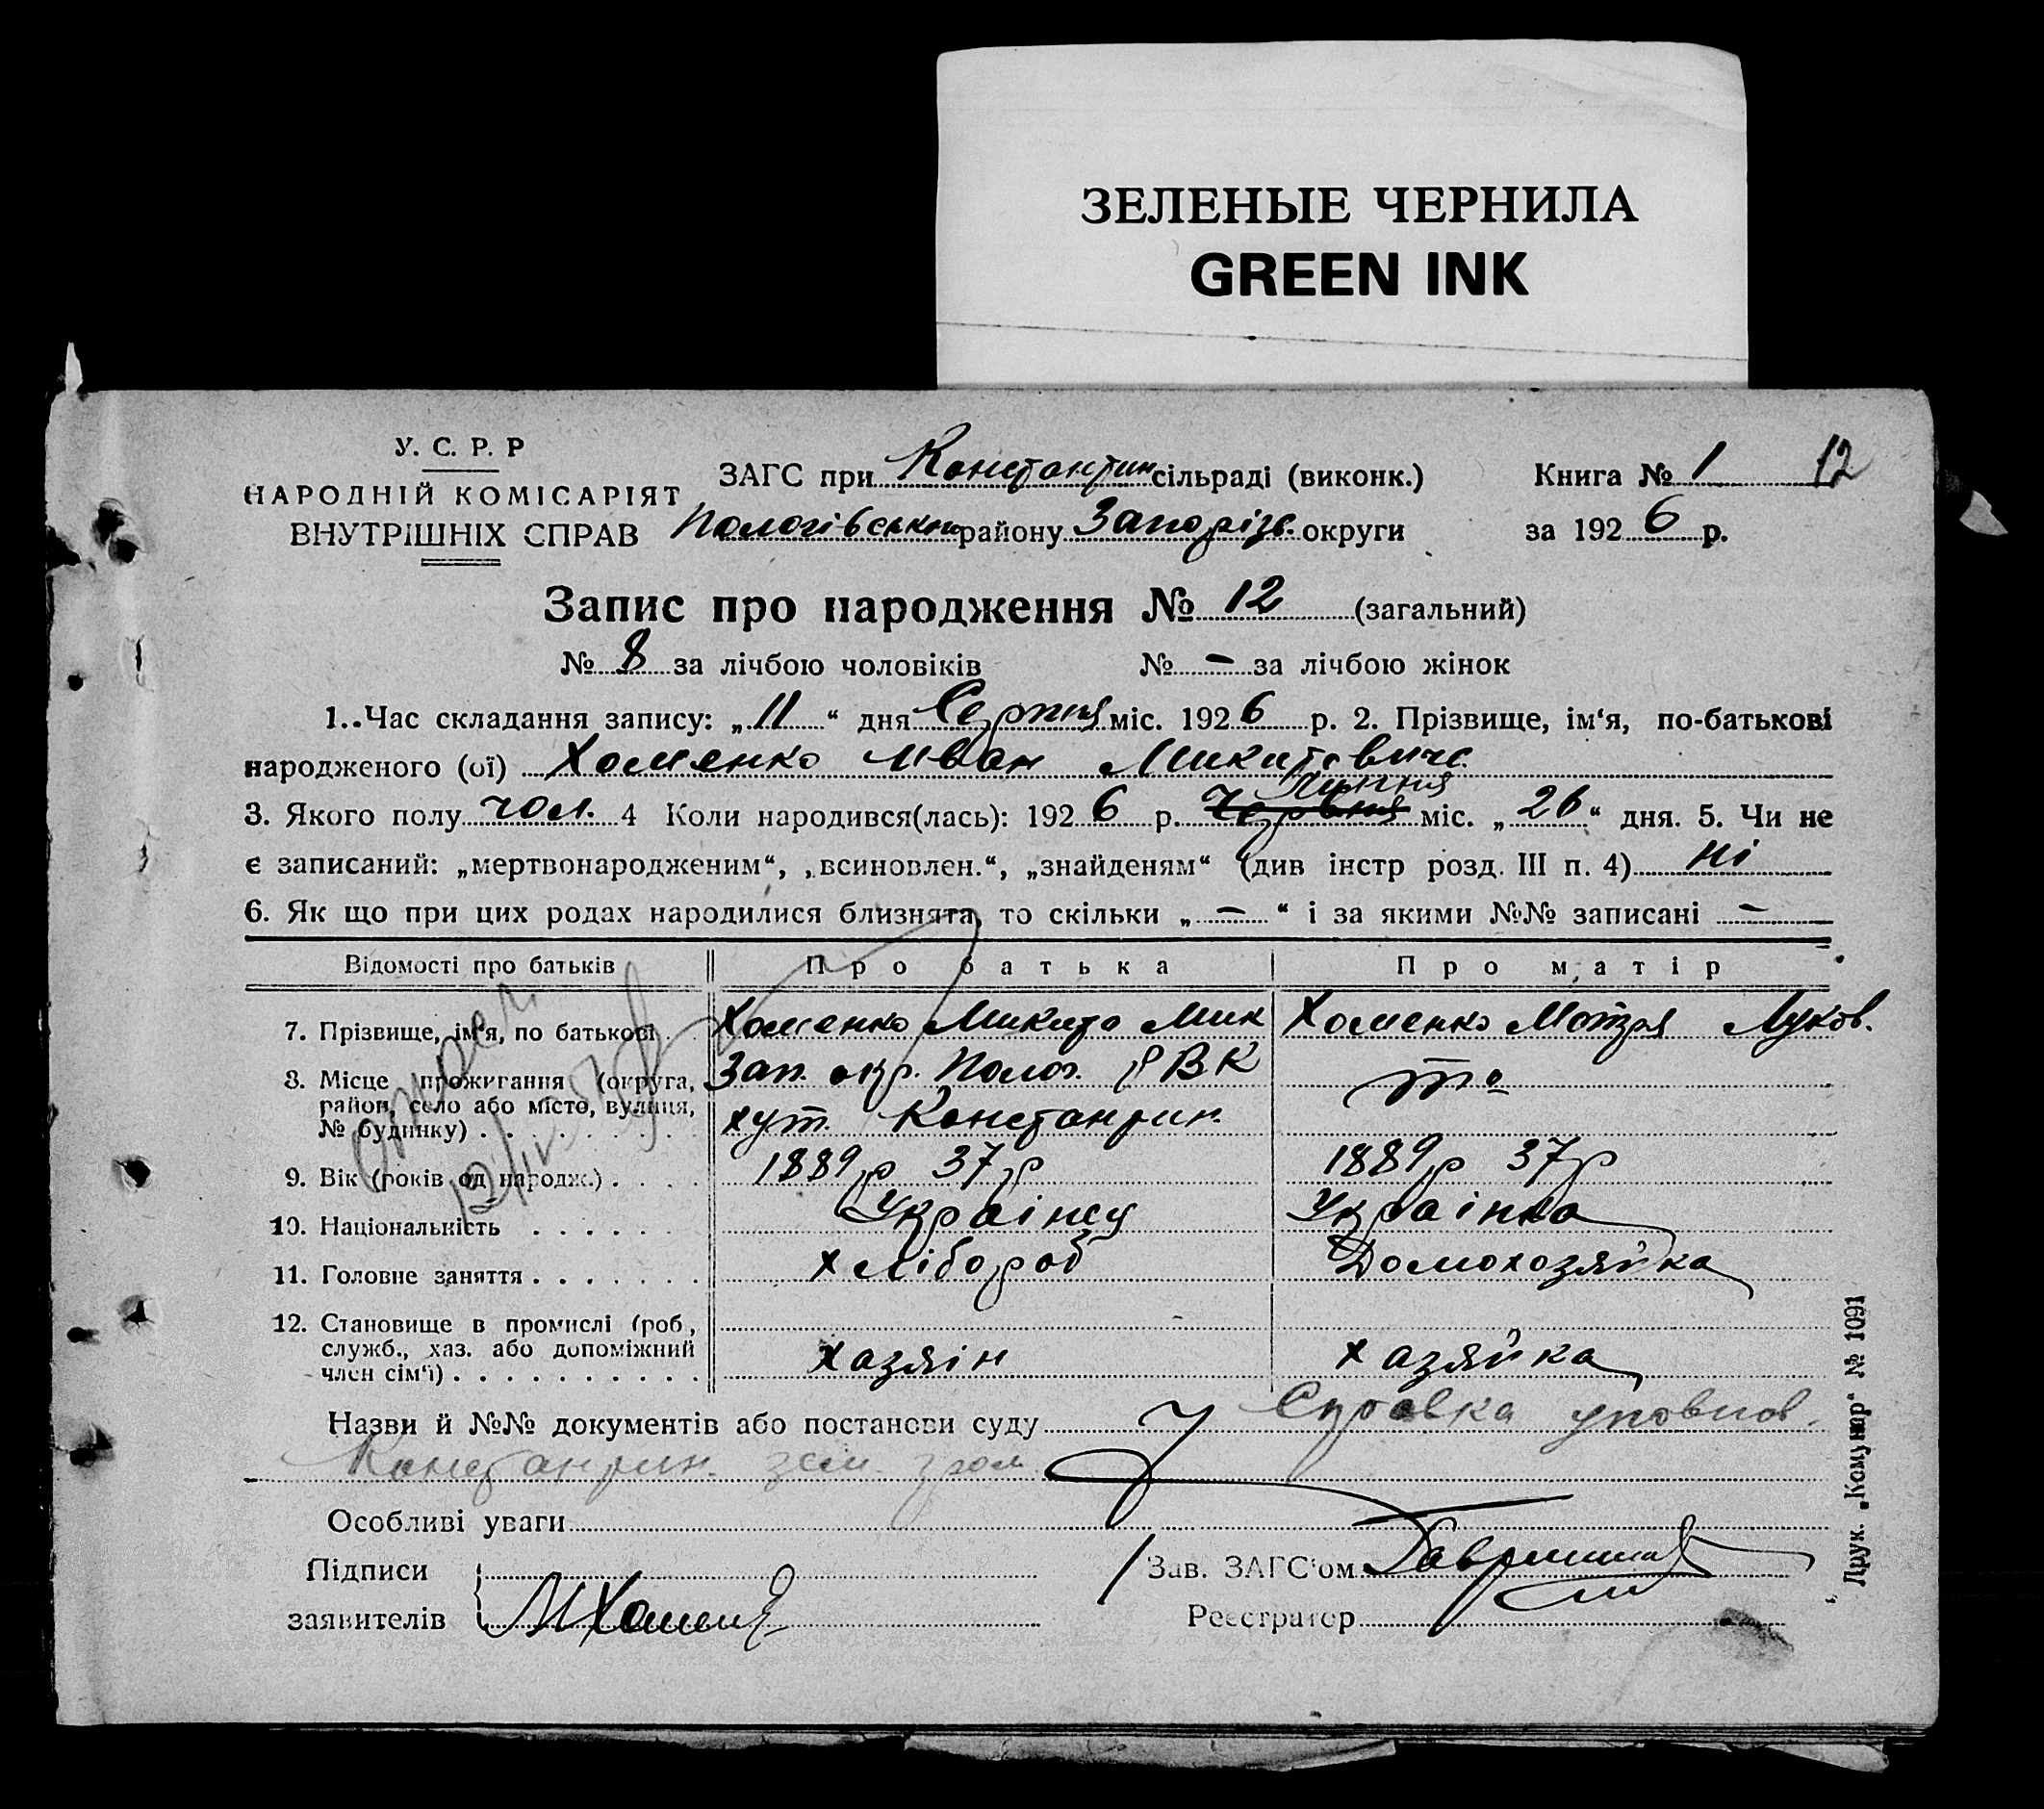 ЗЕЛЕНЫЕ ЧЕРНИЛА
GREEN INK
У. С. Р. Р
НАРОДНІЙ КОМІСАРІЯТ
ВНУТРІШНІХ СПРАВ
ЗАГС при Константин сільраді (виконк.) Книга № 1 12
Пологівськ району Запоріз. округи за 1926 р.
Запис про народження № 12 (загальний)
№ 8 за лічбою чоловіків № – за лічбою жінок
1. Час складання запису: „11“ дня Серпня міс. 1926 р. 2. Прізвище, ім‘я, по-батькові
народженого (ої) Хоменко Иван Микитович
Липня
3. Якого полу чол. 4 Коли народився(лась): 1926 р. Червня міс. „26“ дня. 5. Чи не
є записаний: „мертвонародженим“, „всиновлен.“, „знайденям“ (див інстр розд. III п. 4) ні
6. Як що при цих родах народилися близнята, то скільки „–“ і за якими №№ записані –
Відомості про батьків Про батька Про матір
7. Прізвище, ім‘я, по батькові Хоменко Микита Мик Хоменко Мотря Луков.
8. Місце проживання (округа, район, село або місто, вулиця, № будинку) Зап. окр. Полог. РВК то
хут. Константин.
9. Вік (років од народж.) 1889 р 37 р 1889 р 37 р
10. Національність Українец Українка
11. Головне заняття хлібороб Домохозяйка
12. Становище в промислі (роб., служб., хаз. або допоміжний член сім‘ї) хазяін хазяйка
Назви й №№ документів або постанови суду Справка уповнов.
Константин. зем. гром
Особливі уваги
Підписи
заявителів МХоменко
Зав. ЗАГС‘ом
Реєстратор
Друк. „Комунар“ № 1091